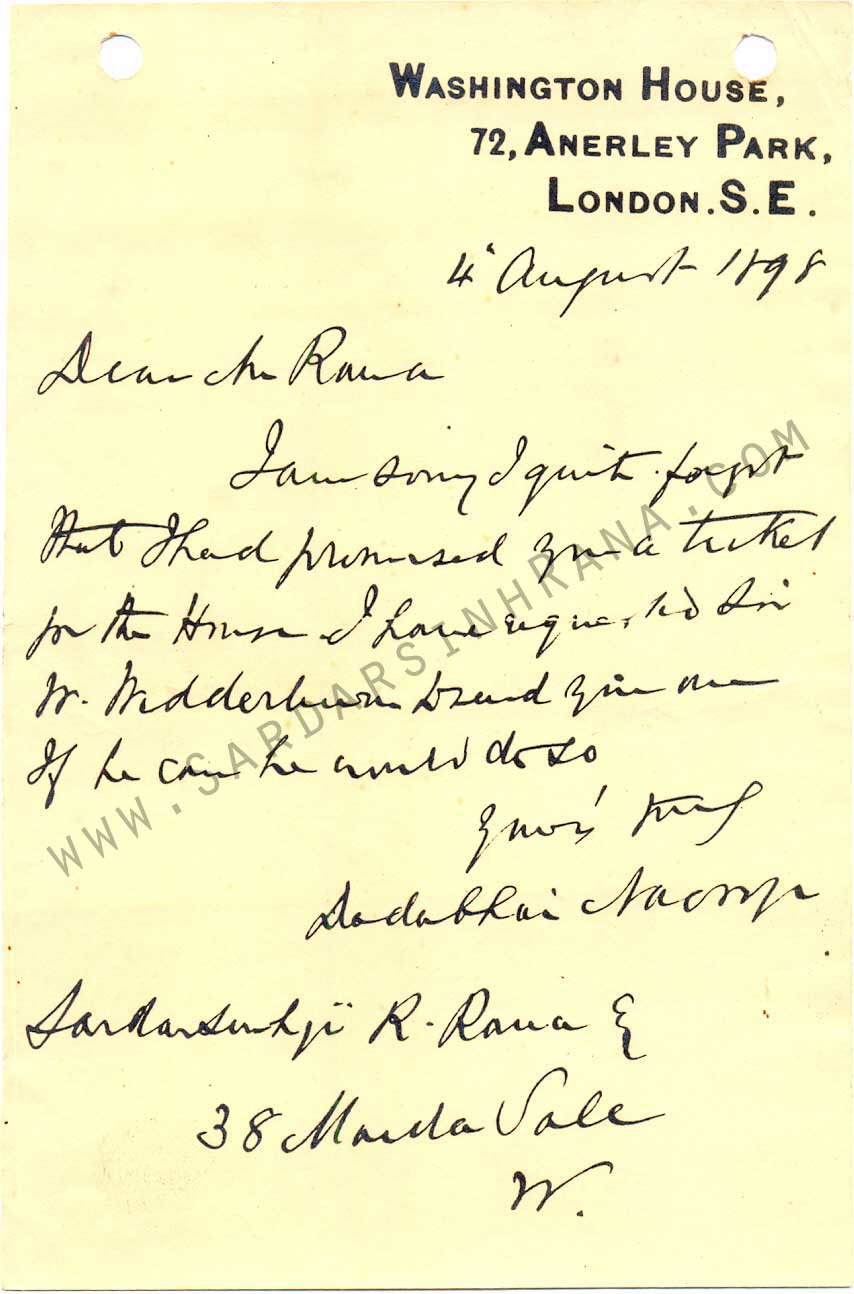 WASHINGTON HOUSE,
72, ANERLEY PARK,
LONDON. S.E.
4 August 1898
Dear Mr Rana
I am sorry I quite forgot
that I had promised you a ticket
for the House I have requested Sir
W. Wedderburn to send you one
If he can he would do so
Yours truly
Dadabhai Naoroji
Sardarsinhji R. Rana E
38 Maida Vale
W.
WWW.SARDARSINHRANA.COM